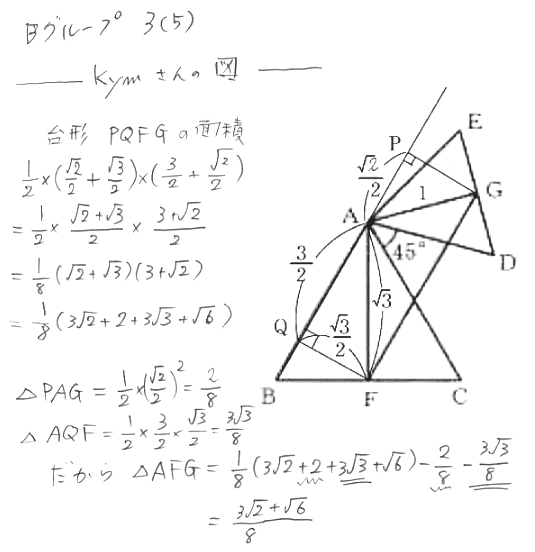 Bグループ 3(5)
kymさんの図
台形 PQFG の面積
1/2×(√2/2+√3/2)×(3/2+√2/2)
=1/2×(√2+√3)/2×(3+√2)/2
=1/8(√2+√3)(3+√2)
=1/8(3√2+2+3√3+√6)
△PAG=1/2×(√2/2)²=2/8
△AQF=1/2×3/2×√3/2=3√3/8
だから △AFG=1/8(3√2+2+3√3+√6)-2/8-3√3/8
=(3√2+√6)/8
E
P
√2/2
1
G
A
45°
D
3/2
√3
Q
√3/2
B
F
C